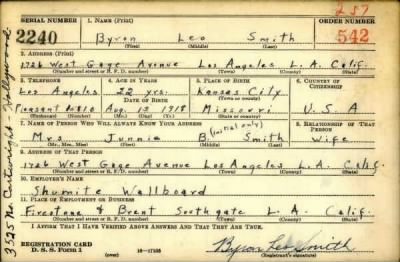 257
SERIAL NUMBER 1. NAME (Print) ORDER NUMBER
2240 Byron Leo Smith 542
(First) (Middle) (Last)
2. ADDRESS (Print)
1726 West Gage Avenue Los Angeles L. A. Calif.
(Number and street or R. F. D. number) (Town) (County) (State)
3. TELEPHONE 4. AGE IN YEARS 5. PLACE OF BIRTH 6. COUNTRY OF CITIZENSHIP
Los Angeles 22 yrs. Kansas City
DATE OF BIRTH (Town or county)
Pleasant Aug. 13 1918 Missouri U. S. A
(Exchange) (Number) (Mo.) (Day) (Yr.) (State or country)
7. NAME OF PERSON WHO WILL ALWAYS KNOW YOUR ADDRESS 8. RELATIONSHIP OF THAT PERSON
Mrs Junnie B. (initial only) Smith Wife
(Mr., Mrs., Miss) (First) (Middle) (Last)
9. ADDRESS OF THAT PERSON
1726 West Gage Avenue Los Angeles L. A. Calif.
(Number and street or R. F. D. number) (Town) (County) (State)
10. EMPLOYER'S NAME
Shumite Wallboard
11. PLACE OF EMPLOYMENT OR BUSINESS
Firestone & Brent Southgate L. A. Calif.
(Number and street or R. F. D. number) (Town) (County) (State)
I AFFIRM THAT I HAVE VERIFIED ABOVE ANSWERS AND THAT THEY ARE TRUE.
REGISTRATION CARD
D. S. S. Form 1 (over) 16—17105 Byron Leo Smith
(Registrant's signature)
3525 No Cartwright - Hollywood